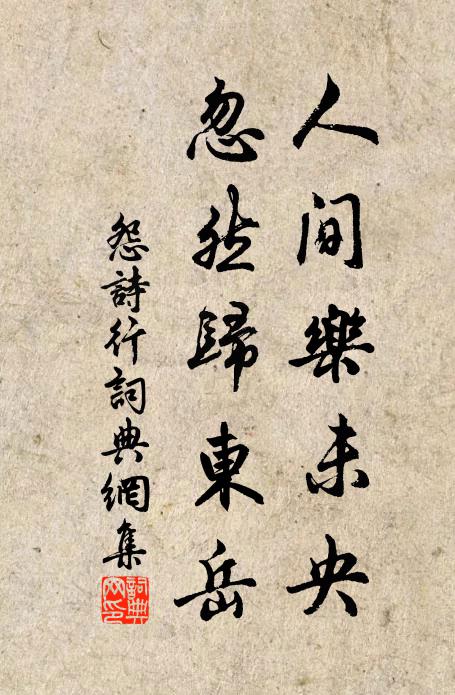 人间樂未央
忽然歸東岳
怨詩行詞典網集
詞典
网印